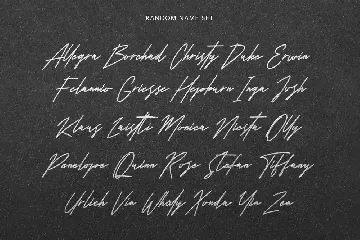 RANDOM NAME SET
Allegra Borchad Christy Duke Erwin
Felannio Griesse Hepburn Inga Josh
Klaus Laistti Monica Niesta Olly
Penelope Quinn Rose Stefan Tiffany
Urlich Via Whedy Xonda Yin Zea